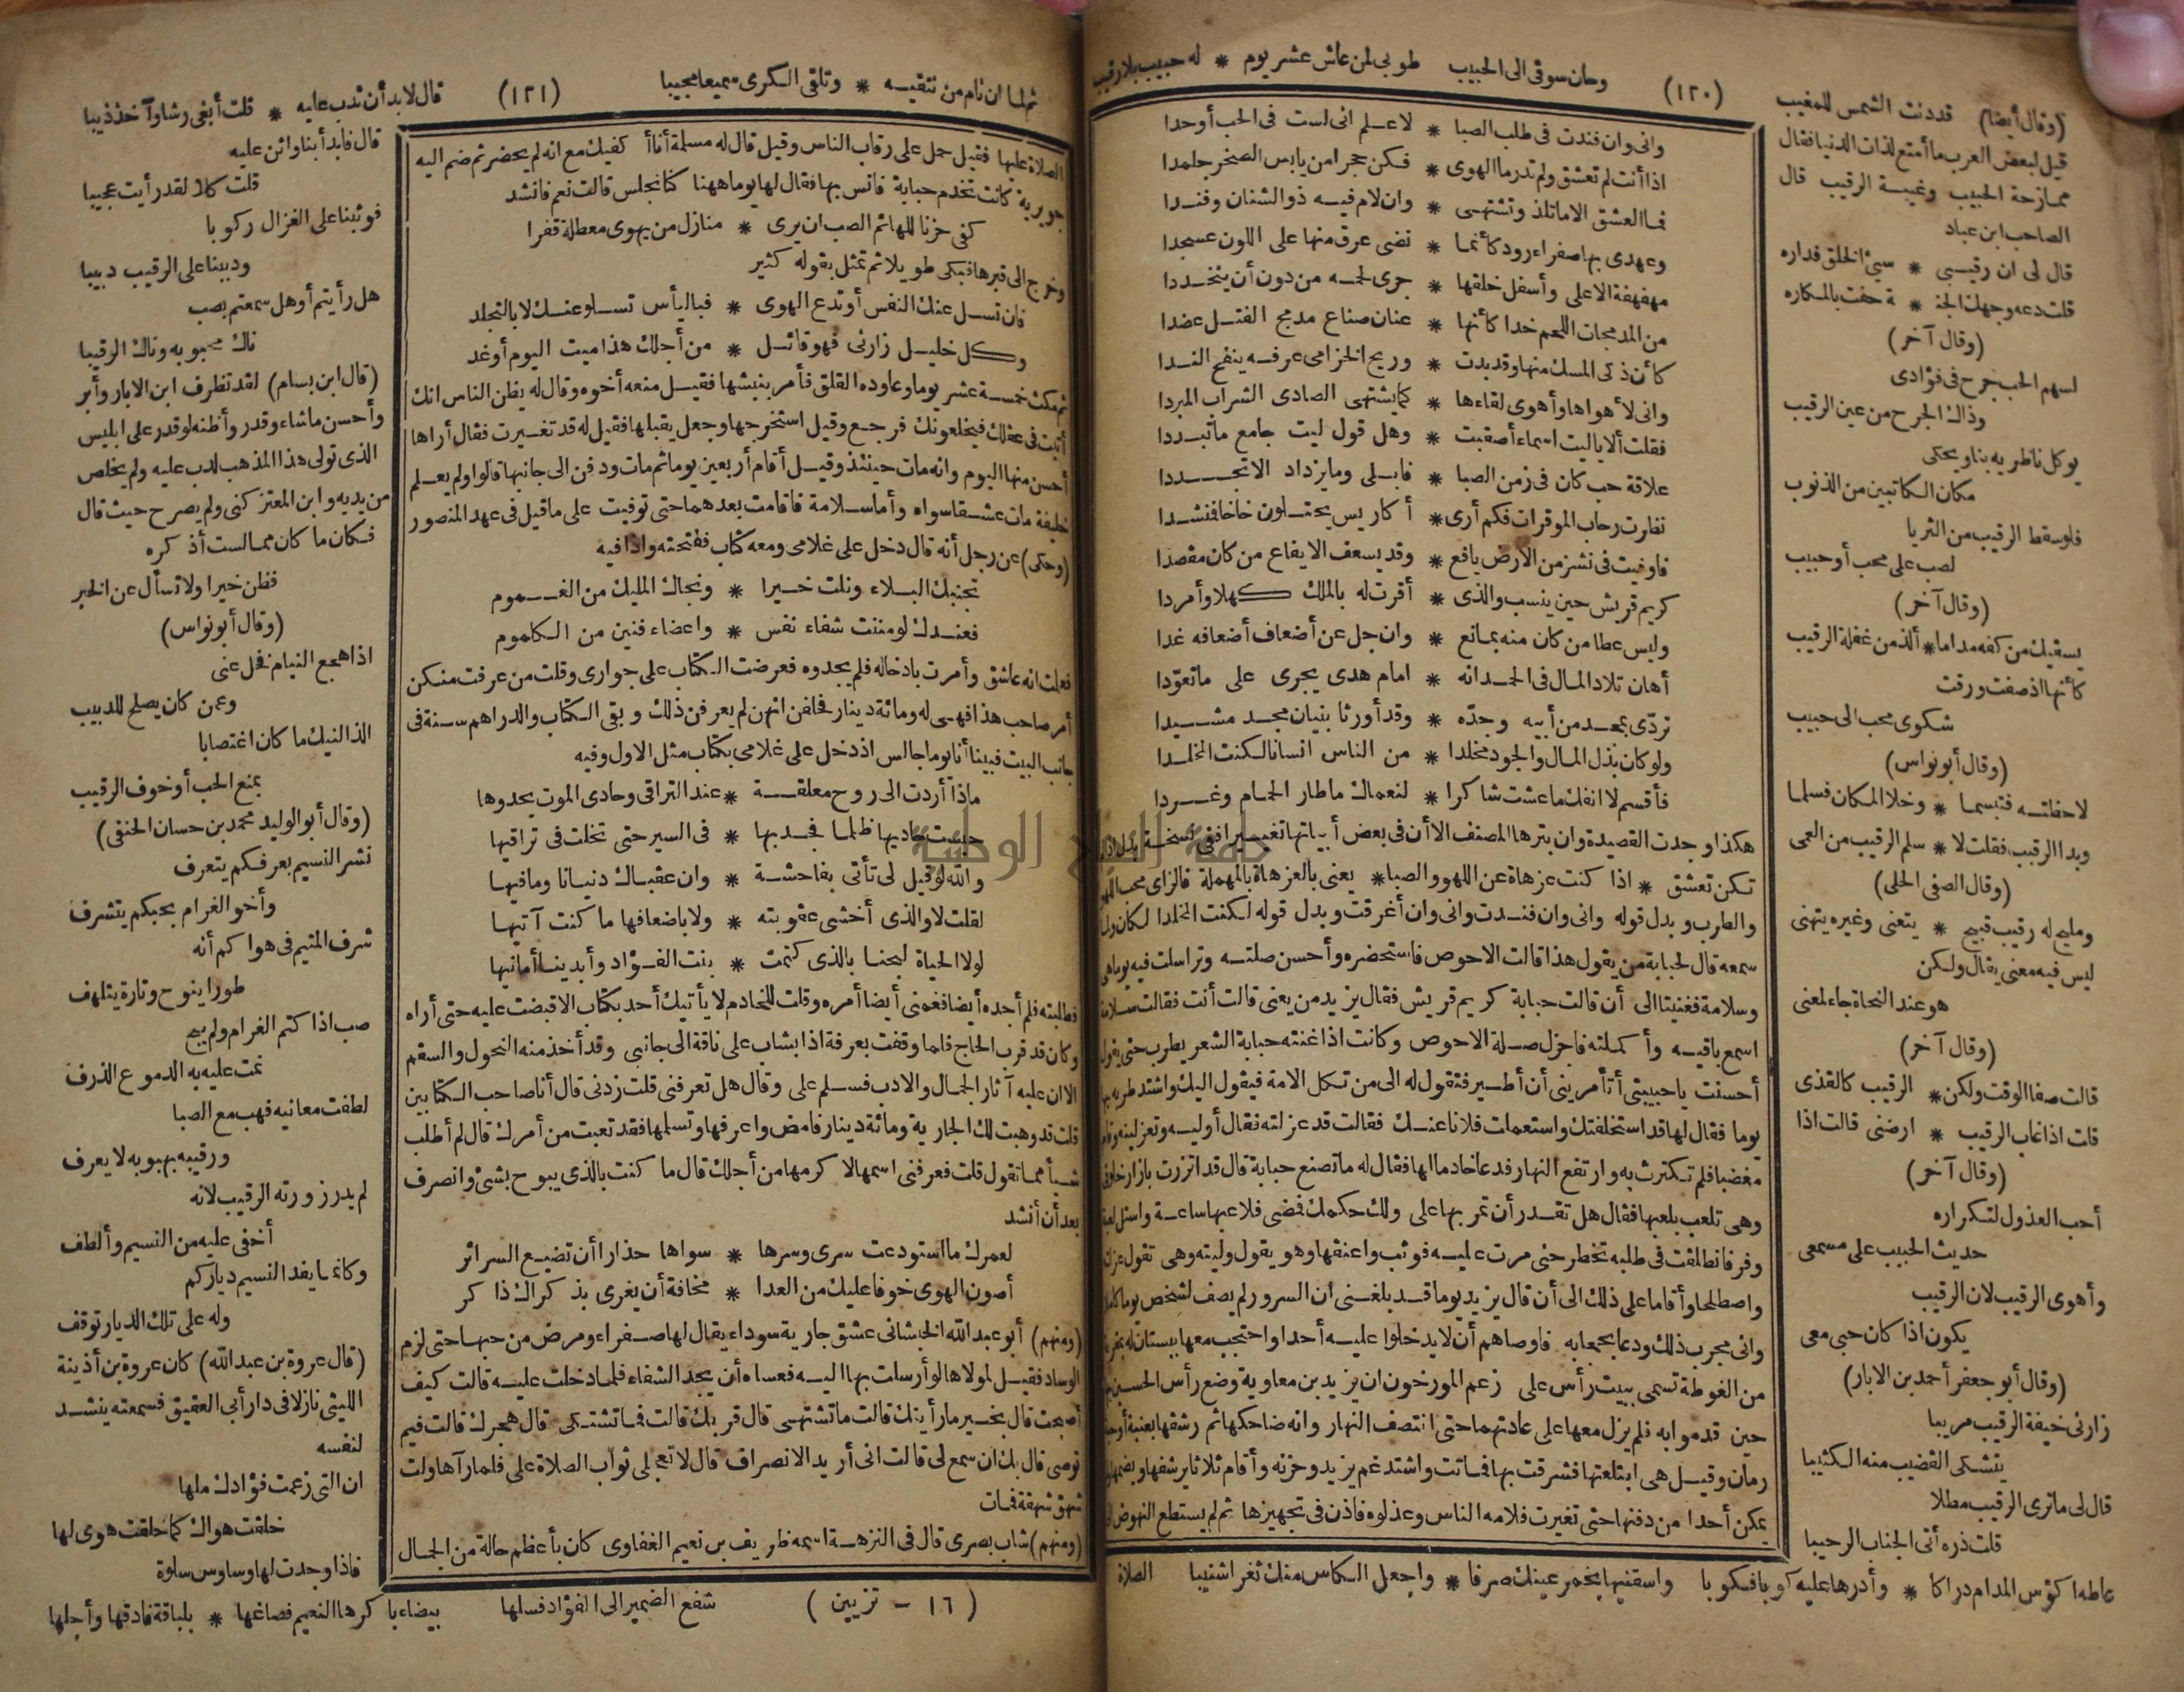 (١٢٠)
وحان سوقى الى الحبيب طوبى لمن عاش عشر يوم * له حبيب بلا رقيب
(وقال أيضا) قد دنت الشمس للمغيب
قيل لبعض العرب ما أمتع لذات الدنيا فقال
ممازحة الحبيب وغيبة الرقيب قال
الصاحب ابن عباد
قال لى ان رقيبى * سيئ الخلق فداره
قلت دعه وجهك الجنـ * ـة حفت بالمكاره
(وقال آخر)
لسهم الحب جرح فى فؤادى
وذاك الجرح من عين الرقيب
يوكل ناظريه بنا ويحكى
مكان الكاتبين من الذنوب
فلو سقط الرقيب من الثريا
لصب على محب أو حبيب
(وقال آخر)
يسقيك من كفه مداما * ألذ من غفلة الرقيب
كأنها اذ صفت ورقت
شكوى محب الى حبيب
(وقال أبو نواس)
لاحظته فتبسما * وخلا المكان فسلما
وبدا الرقيب فقلت لا * سلم الرقيب من العمى
(وقال الصفى الحلى)
ومليح له رقيب قبيح * يتعنى وغيره يتهنى
ليس فيه معنى يقال ولكن
هو عند النحاة جاء لمعنى
(وقال آخر)
قالت صفا الوقت ولكن * الرقيب كالقذى
قلت اذا غاب الرقيب * ارضنى قالت اذا
(وقال آخر)
أحب العذول لتكراره
حديث الحبيب على مسمعى
وأهوى الرقيب لان الرقيب
يكون اذا كان حبى معى
(وقال أبو جعفر أحمد بن الابار)
زارنى خيفة الرقيب مريبا
يتشكى القضيب منه الكثيبا
قال لى ما ترى الرقيب مطلا
قلت ذره أتى الجناب الرحيبا
عاطه اكؤس المدام دراكا * وأدرها عليه كوبا فكوبا واسقنيها بخمر عينك صرفا * واجعل الكاس منك ثغرا شنيبا
وانى وان فندت فى طلب الصبا * لاعلم انى لست فى الحب أوحدا
اذا أنت لم تعشق ولم تدر ما الهوى * فكن حجرا من يابس الصخر جلمدا
فما العشق الا ما تلذ وتشتهى * وان لام فيه ذو الشنان وفندا
وعهدى بها صفراء رود كأنما * نضى عرق منها على اللون عسجدا
مهفهفة الاعلى وأسفل خلقها * جرى لحمه من دون أن يتخددا
من المدمجات اللحم خدا كأنها * عنان صناع مدمج الفتل عضدا
كأن ذكى المسك منها وقد بدت * وريح الخزامى عرفه ينفح الندا
وانى لأهواها وأهوى لقاءها * كما يشتهى الصادى الشراب المبردا
فقلت ألا ياليت اسماء أصقبت * وهل قول ليت جامع ما تبددا
علاقة حب كان فى زمن الصبا * فابلى وما يزداد الا تجددا
نظرت رحاب الموقرات فكم أرى * أكاريس يحتلون خاخا فنشدا
فاوفيت فى نشز من الارض يافع * وقد يسعف الايفاع من كان مقصدا
كريم قريش حين ينسب والذى * أقرت له بالملك كهلا وأمردا
وليس عطا من كان منه بمانع * وان جل عن أضعاف أضعافه غدا
أهان تلاد المال فى الحمد انه * امام هدى يجرى على ما تعوّدا
تردّى بمجد من أبيه وجدّه * وقد أورثا بنيان مجد مشيدا
ولو كان بذل المال والجود مخلدا * من الناس انسانا لكنت المخلدا
فأقسم لا انفك ما عشت شاكرا * لنعماك ما طار الحمام وغردا
هكذا وجدت القصيدة وان بترها المصنف الا أن فى بعض أبياتها تغييرا ففى نسخة بدل اذا
تكن تعشق * اذا كنت عزهاة عن اللهو والصبا * يعنى بالعزهاة بالمهملة فالزاى محب اللهو
والطرب وبدل قوله وانى وان فندت وانى وان أغرقت وبدل قوله لكنت المخلدا لكان
سمعه قال لحبابة من يقول هذا قالت الاحوص فاستحضره وأحسن صلته وتراسلت فيه يوما هى
وسلامة فغنيتا الى أن قالت حبابة كريم قريش فقال يزيد من يعنى قالت أنت فقالت سلامة
اسمع باقيه وأكملته فاخزل صلة الاحوص وكانت اذا غنته حبابة الشعر يطرب حتى يقول
أحسنت يا حبيبتى أتأمرينى أن أطير فتقول له الى من تكل الامة فيقول اليك واشتد طربه بها
يوما فقال لها قد استخلفتك واستعملت فلانا عنك فقالت قد عزلته فقال أوليه وتعزلينه وقام
مغضبا فلم تكترث به وارتفع النهار فدعا خادما لها فقال له ما تصنع حبابة قال قد اتزرت بازار خلوقى
وهى تلعب بلعبها فقال هل تقدر أن تمر بها على ولك حكمك فمضى فلاعبها ساعة واستل لعبة
وفر فانطلقت فى طلبه تخطر حتى مرت عليه فوثب واعتنقها وهو يقول وليته وهى تقول عزلته
واصطلحا وأقاما على ذلك الى أن قال يزيد يوما قد بلغنى ان السرور لم يصف لشخص يوما كاملا
وانى مجرب ذلك ودعا بحجابه فاوصاهم أن لا يدخلوا عليه أحدا واحتجب معها ببستان له
من الغوطة تسمى ببيت رأس على زعم المورخون ان يزيد بن معاوية وضع رأس الحسين
حين قدموا به فلم يزل معها على عادتهما حتى انتصف النهار وانه ضاحكها ثم رشقها بعنبة أو حبة
رمان وقيل هى ابتلعتها فشرقت بها فماتت واشتد غم يزيد وحزنه وأقام ثلاثا يرشفها ويضمها
يمكن أحدا من دفنها حتى تغيرت فلامه الناس وعذلوه فاذن فى تجهيزها ثم لم يستطع النهوض
الصلاة
(١٢١)
ثم لما ان نام من نتقيه * وتلقى الكرى سميعا مجيبا
قال لا بد أن تدب عليه * قلت أبغى رشا وآخذ ذيبا
قال فابدأ بنا واثن عليه
قلت كلا لقد رأيت عجيبا
فوثبنا على الغزال ركوبا
ودببنا على الرقيب دبيبا
هل رأيتم أو هل سمعتم بصب
ناك محبوبه وناك الرقيبا
(قال ابن بسام) لقد تظرف ابن الابار وأبر
وأحسن ما شاء وقدر وأظنه لو قدر على ابليس
الذى تولى هذا المذهب لدب عليه ولم يخلص
من يديه وابن المعتز كنى ولم يصرح حيث قال
فكان ما كان مما لست أذكره
فظن خيرا ولا تسأل عن الخبر
(وقال أبو نواس)
اذا هجع النيام فخل عنى
وعمن كان يصلح للدبيب
الذ النيك ما كان اغتصابا
بمنع الحب أو خوف الرقيب
(وقال أبو الوليد محمد بن حسان الحنفى)
نشر النسيم بعرفكم يتعرف
وأخو الغرام بحبكم يتشرف
شرف المتيم فى هواكم أنه
طورا ينوح وتارة يتلهف
صب اذا كتم الغرام ولم يبح
نمت عليه به الدموع الذرف
لطفت معانيه فهب مع الصبا
ورقيبه بهبوبه لا يعرف
لم يدر زورته الرقيب لانه
أخفى عليه من النسيم وألطف
وكانما يفد النسيم دياركم
وله على تلك الديار توقف
(قال عروة بن عبد الله) كان عروة بن أذينة
الليثى نازلا فى دار أبى العقيق فسمعته ينشد
لنفسه
ان التى زعمت فؤادك ملها
خلقت هواك كما خلقت هوى لها
فاذا وجدت لها وساوس سلوة
شفع الضمير الى الفؤاد فسلها
بيضاء باكرها النعيم فصاغها * بلباقة فادقها وأجلها
الصلاة عليها فقيل حمل على رقاب الناس وقيل قال له مسلمة أنا أكفيك مع انه لم يحضر ثم ضم اليه
جويرية كانت تخدم حبابة فانس بها فقال لها يوما ههنا كنا نجلس قالت نعم فانشد
كفى حزنا للهائم الصب ان يرى * منازل من يهوى معطلة قفرا
وخرج الى قبرها فبكى طويلا ثم تمثل بقوله كثير
فان تسل عنك النفس أو تدع الهوى * فبالياس تسلو عنك لا بالتجلد
وكل خليل زارنى فهو قائل * من أجلك هذا ميت اليوم أو غد
ثم مكث خمسة عشر يوما وعاوده القلق فأمر بنبشها فقيل منعه أخوه وقال له يظن الناس انك
أتيت فى عقلك فيخلعونك فرجع وقيل استخرجها وجعل يقبلها فقيل له قد تغيرت فقال أراها
أحسن منها اليوم وانه مات حينئذ وقيل أقام أربعين يوما ثم مات ودفن الى جانبها قالوا ولم يعلم
خليفة مات عشقا سواه وأما سلامة فاقامت بعدهما حتى توفيت على ما قيل فى عهد المنصور
(وحكى) عن رجل أنه قال دخل على غلامى ومعه كتاب ففتحته واذا فيه
تجنبك البلاء ونلت خيرا * ونجاك المليك من الغموم
فعندك لو مننت شفاء نفس * واعضاء فنين من الكلموم
فعلمت انه عاشق وأمرت بادخاله فلم يجدوه فعرضت الكتاب على جوارى وقلت من عرفت منكن
أمر صاحب هذا فهى له ومائة دينار فحلفن انهن لم يعرفن ذلك وبقى الكتاب والدراهم سنة فى
جانب البيت فبينا أنا يوما جالس اذ دخل على غلامى بكتاب مثل الاول وفيه
ماذا أردت الى روح معلقة * عند التراقى وحادى الموت يحدوها
حثثت حاديها ظلما فجد بها * فى السير حتى تخلت فى تراقيها
والله لو قيل لى تأتى بفاحشة * وان عقباك دنيانا وما فيها
لقلت لا والذى أخشى عقوبته * ولا باضعافها ما كنت آتيها
لولا الحياة لبحنا بالذى كتمت * بنت الفؤاد وأبدينا أمانيها
فطلبته فلم أجده أيضا فغمنى أيضا أمره وقلت للخادم لا يأتيك أحد بكتاب الا قبضت عليه حتى أراه
وكان قد قرب الحاج فلما وقفت بعرفة اذا بشاب على ناقة الى جانبى وقد أخذ منه النحول والسقم
الا ان عليه آثار الجمال والادب فسلم على وقال هل تعرفنى قلت زدنى قال أنا صاحب الكتابين
قلت قد وهبت لك الجارية ومائة دينار فامض واعرفها وتسلمها فقد تعبت من أمرك قال لم أطلب
شيأ مما تقول قلت فعرفنى اسمها لاكرمها من أجلك قال ما كنت بالذى يبوح بشئ وانصرف
بعد أن أنشد
لعمرك ما استودعت سرى وسرها * سواها حذارا أن تضيع السرائر
أصون الهوى خوفا عليك من العدا * مخافة أن يغرى بذكراك ذاكر
(ومنهم) أبو عبد الله الجاشانى عشق جارية سوداء يقال لها صفراء ومرض من حبها حتى لزم
الوساد فقيل لمولاها لو أرسلت بها اليه فعساه أن يجد الشفاء فلما دخلت عليه قالت كيف
أصبحت قال بخير ما رأيتك قالت ما تشتهى قال قربك قالت فما تشتكى قال هجرك قالت فيم
توصى قال بك ان سمع لى قالت انى أريد الانصراف قال لا تعجلى ثواب الصلاة على فلما رآها ولت
شهق شهقة فمات
(ومنهم) شاب بصرى قال فى النزهة اسمه ظريف بن نعيم الغفاوى كان بأعظم حالة من الجمال
(١٦ - تزيين)